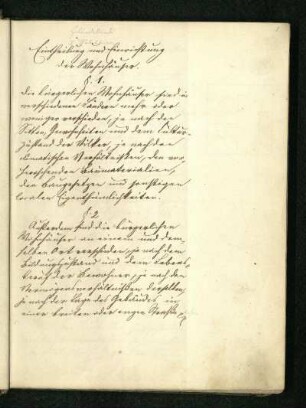 Eintheilung und Einrichtung
der Wohnhäuser.
§ 1.
Die bürgerlichen Wohnhäuser sind in
verschiedenen Ländern mehr oder
weniger verschieden, je nach den
Sitten, Gewohnheiten und dem Cultur-
zustand der Völker, je nach den
climatischen Verhältnissen, den vor-
herrschenden Baumaterialien,
den Baugesetzen und sonstigen
localen Eigenthümlichkeiten.
§ 2.
Außerdem sind die bürgerlichen
Wohnhäuser an einem und dem-
selben Ort verschieden, je nach dem
Bildungszustand und dem Lebens-
der Bewohner, je nach den
Vermögensverhältnißen derselben,
je nach der Lage des Gebäudes, in
einer breiten oder engen Straße,